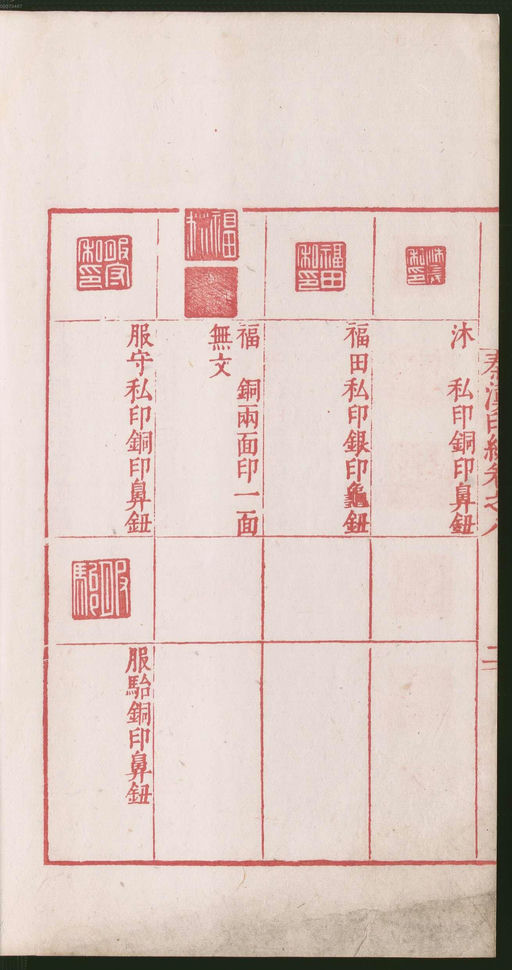 秦漢印統卷之八
二
沐　私印銅印鼻鈕
福田私印
福田私印銀印龜鈕
福　銅兩面印一面
無文
服守私印
服守私印銅印鼻鈕
服駘
服駘銅印鼻鈕